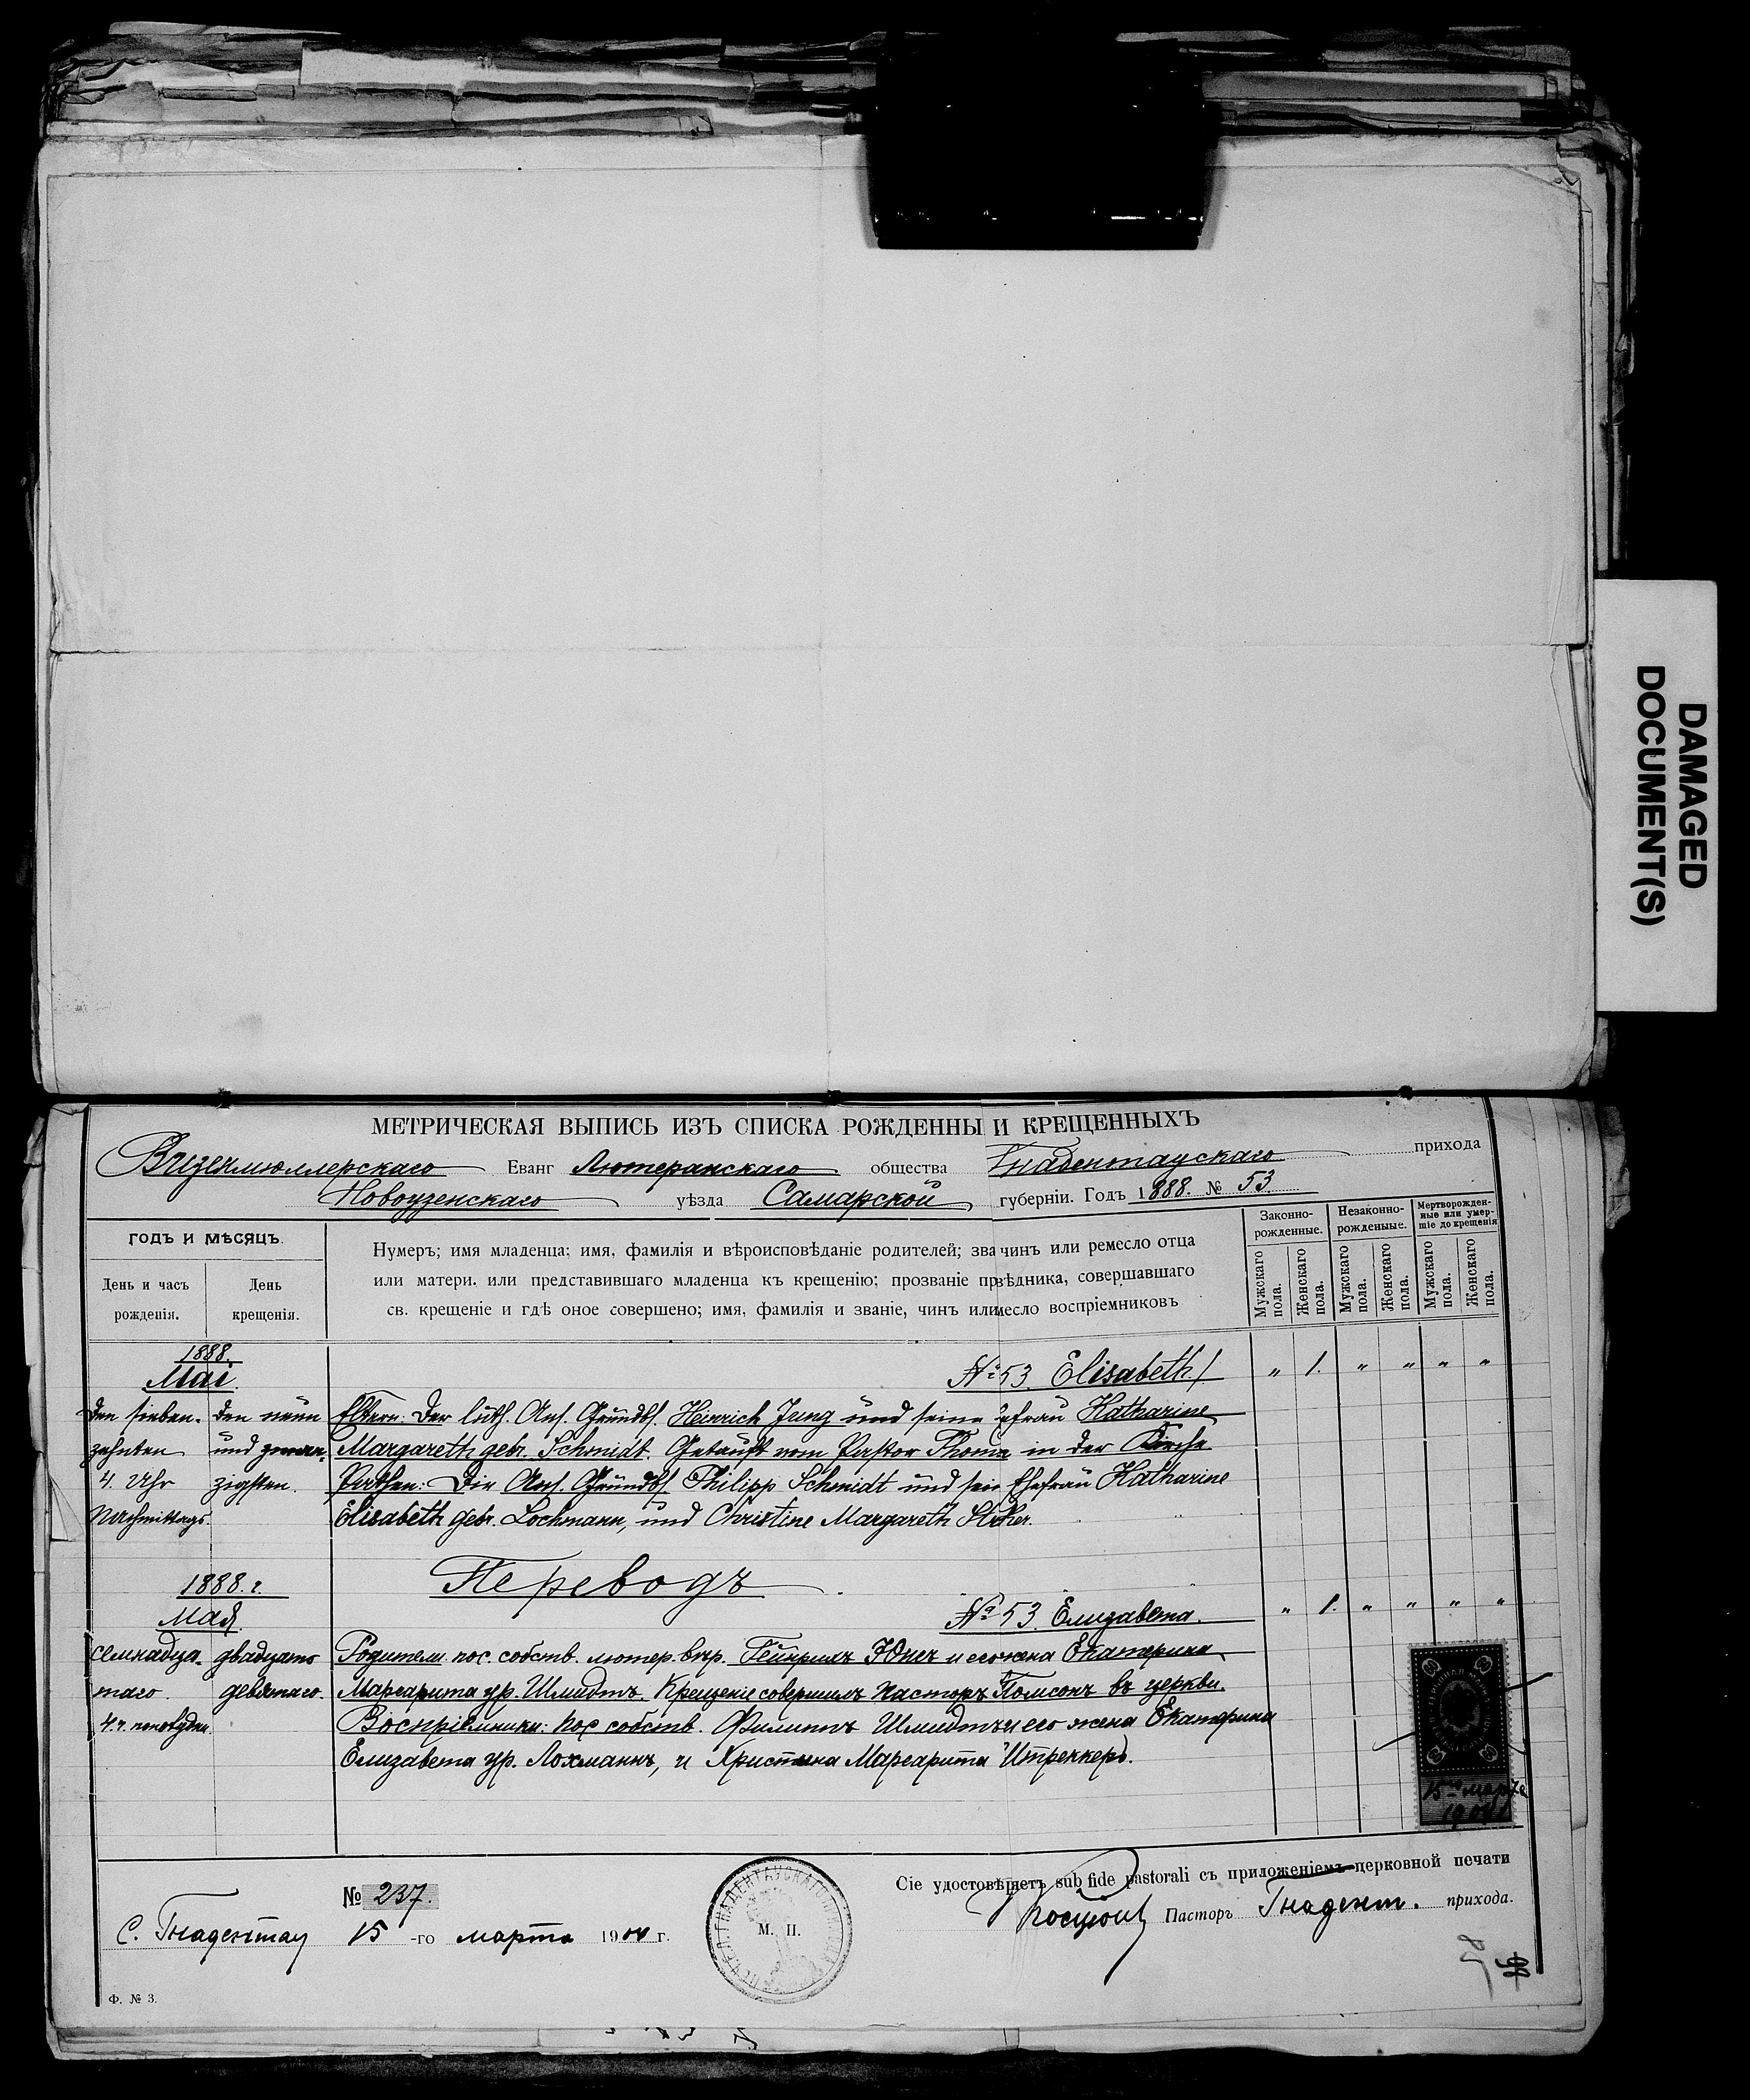 DAMAGED
DOCUMENT(S)
МЕТРИЧЕСКАЯ ВЫПИСЬ ИЗЪ СПИСКА РОЖДЕННЫ И КРЕЩЕННЫХЪ
Визенмюллерскаго Еванг Лютеранскаго общества Гнадентаускаго прихода
Новоузенскаго уѣзда Самарской губерніи. Годъ 1888. № 53.
ГОДЪ И МѢСЯЦЪ.
День и часъ рожденія.
День крещенія.
Нумеръ; имя младенца; имя, фамилія и вѣроисповѣданіе родителей; зва чинъ или ремесло отца
или матери. или представившаго младенца къ крещенію; прозваніе првѣдника, совершавшаго
св. крещеніе и гдѣ оное совершено; имя, фамилія и званіе, чинъ илимесло воспріемниковъ
Законно-рожденные.
Незаконно-рожденные.
Мертворожден-ные или умер-шіе до крещенія
Мужскаго пола.
Женскаго пола.
Мужскаго пола.
Женскаго пола.
Мужскаго пола.
Женскаго пола.
1888.
Mai.
№ 53. Elisabeth. „ 1. „ „ „ „
den sieben- den neun Eltern: Der luth. Ans. Grundbs. Heinrich Jung und seine Ehefrau Katharine
zehnten und zwan- Margareth gebr. Schmidt. Getauft vom Pastor Thoms in der Kirche.
4. Uhr zigsten. Pathen: Die Ans. Grundbs. Philipp Schmidt und sein Ehefrau Katharine
Nachmittags. Elisabeth gebr. Lochmann, und Christine Margareth
Переводъ
1888. г.
Мая.
№ 53. Елизавета. „ 1. „ „ „ „
семнадца- двадцать Родители пос. собств. лютер. вѣр. Гейнрихъ Юнгъ и его жена Екатерина
таго. девятаго. Маргарита ур. Шмидтъ. Крещеніе совершилъ пасторъ Томсонъ въ церкви.
4 ч. пополудни. Воспріемники: пос. собств. Филиппъ Шмидтъ и его жена Екатерина
Елизавета ур. Лохманнъ, и Христина Маргарита Штреккеръ.
15го марта
№ 237.
С. Гнадентау 15 -го марта 19 г.
М. П.
Сіе удостовѣряетъ sub fide pastorali съ приложеніемъ церковной печати
Пасторъ Гнадент. прихода.
Ф. № 3.